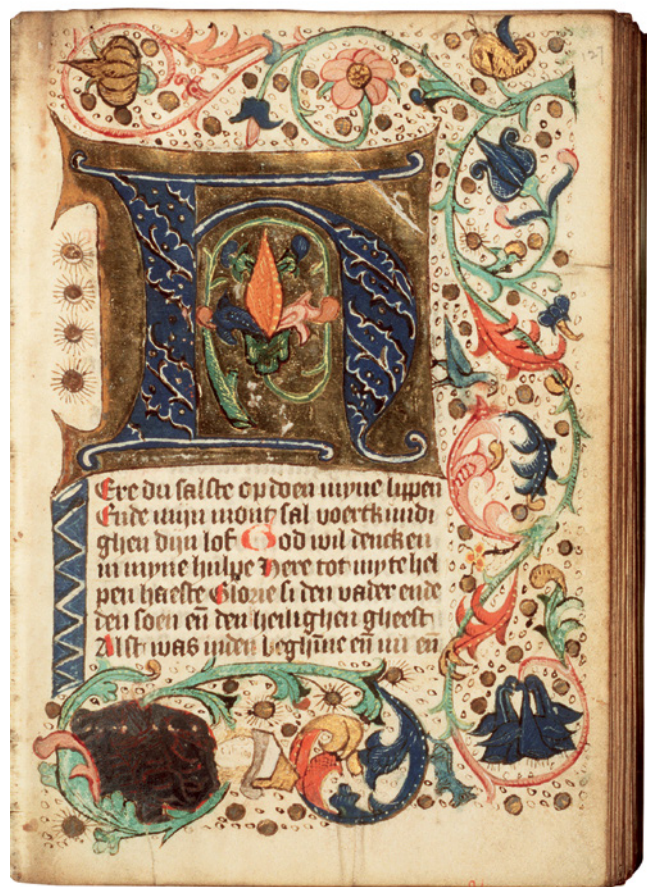 127
H
Ere du salste op doen myne lippen
Ende mijn mont sal voertkundi
ghen dijn lof God wil dencken
in myne hulpe Here tot my te hel
pen haeste Glorie si den vader ende
den soen en̄ den heilighen gheest
Alst was inden beghīne en̄ nu en̄